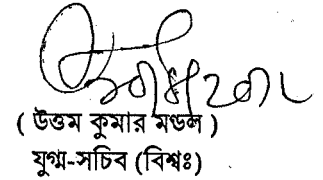 ( উত্তম কুমার মন্ডল )
যুগ্ম-সচিব (বিশ্বঃ)